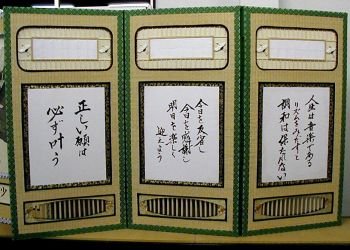 人生は音楽である
リズムをみだすと
調和は保たれない
今日を反省し
今日を感謝し
明日を楽しく
迎えよう
正しい願は
必ず叶う